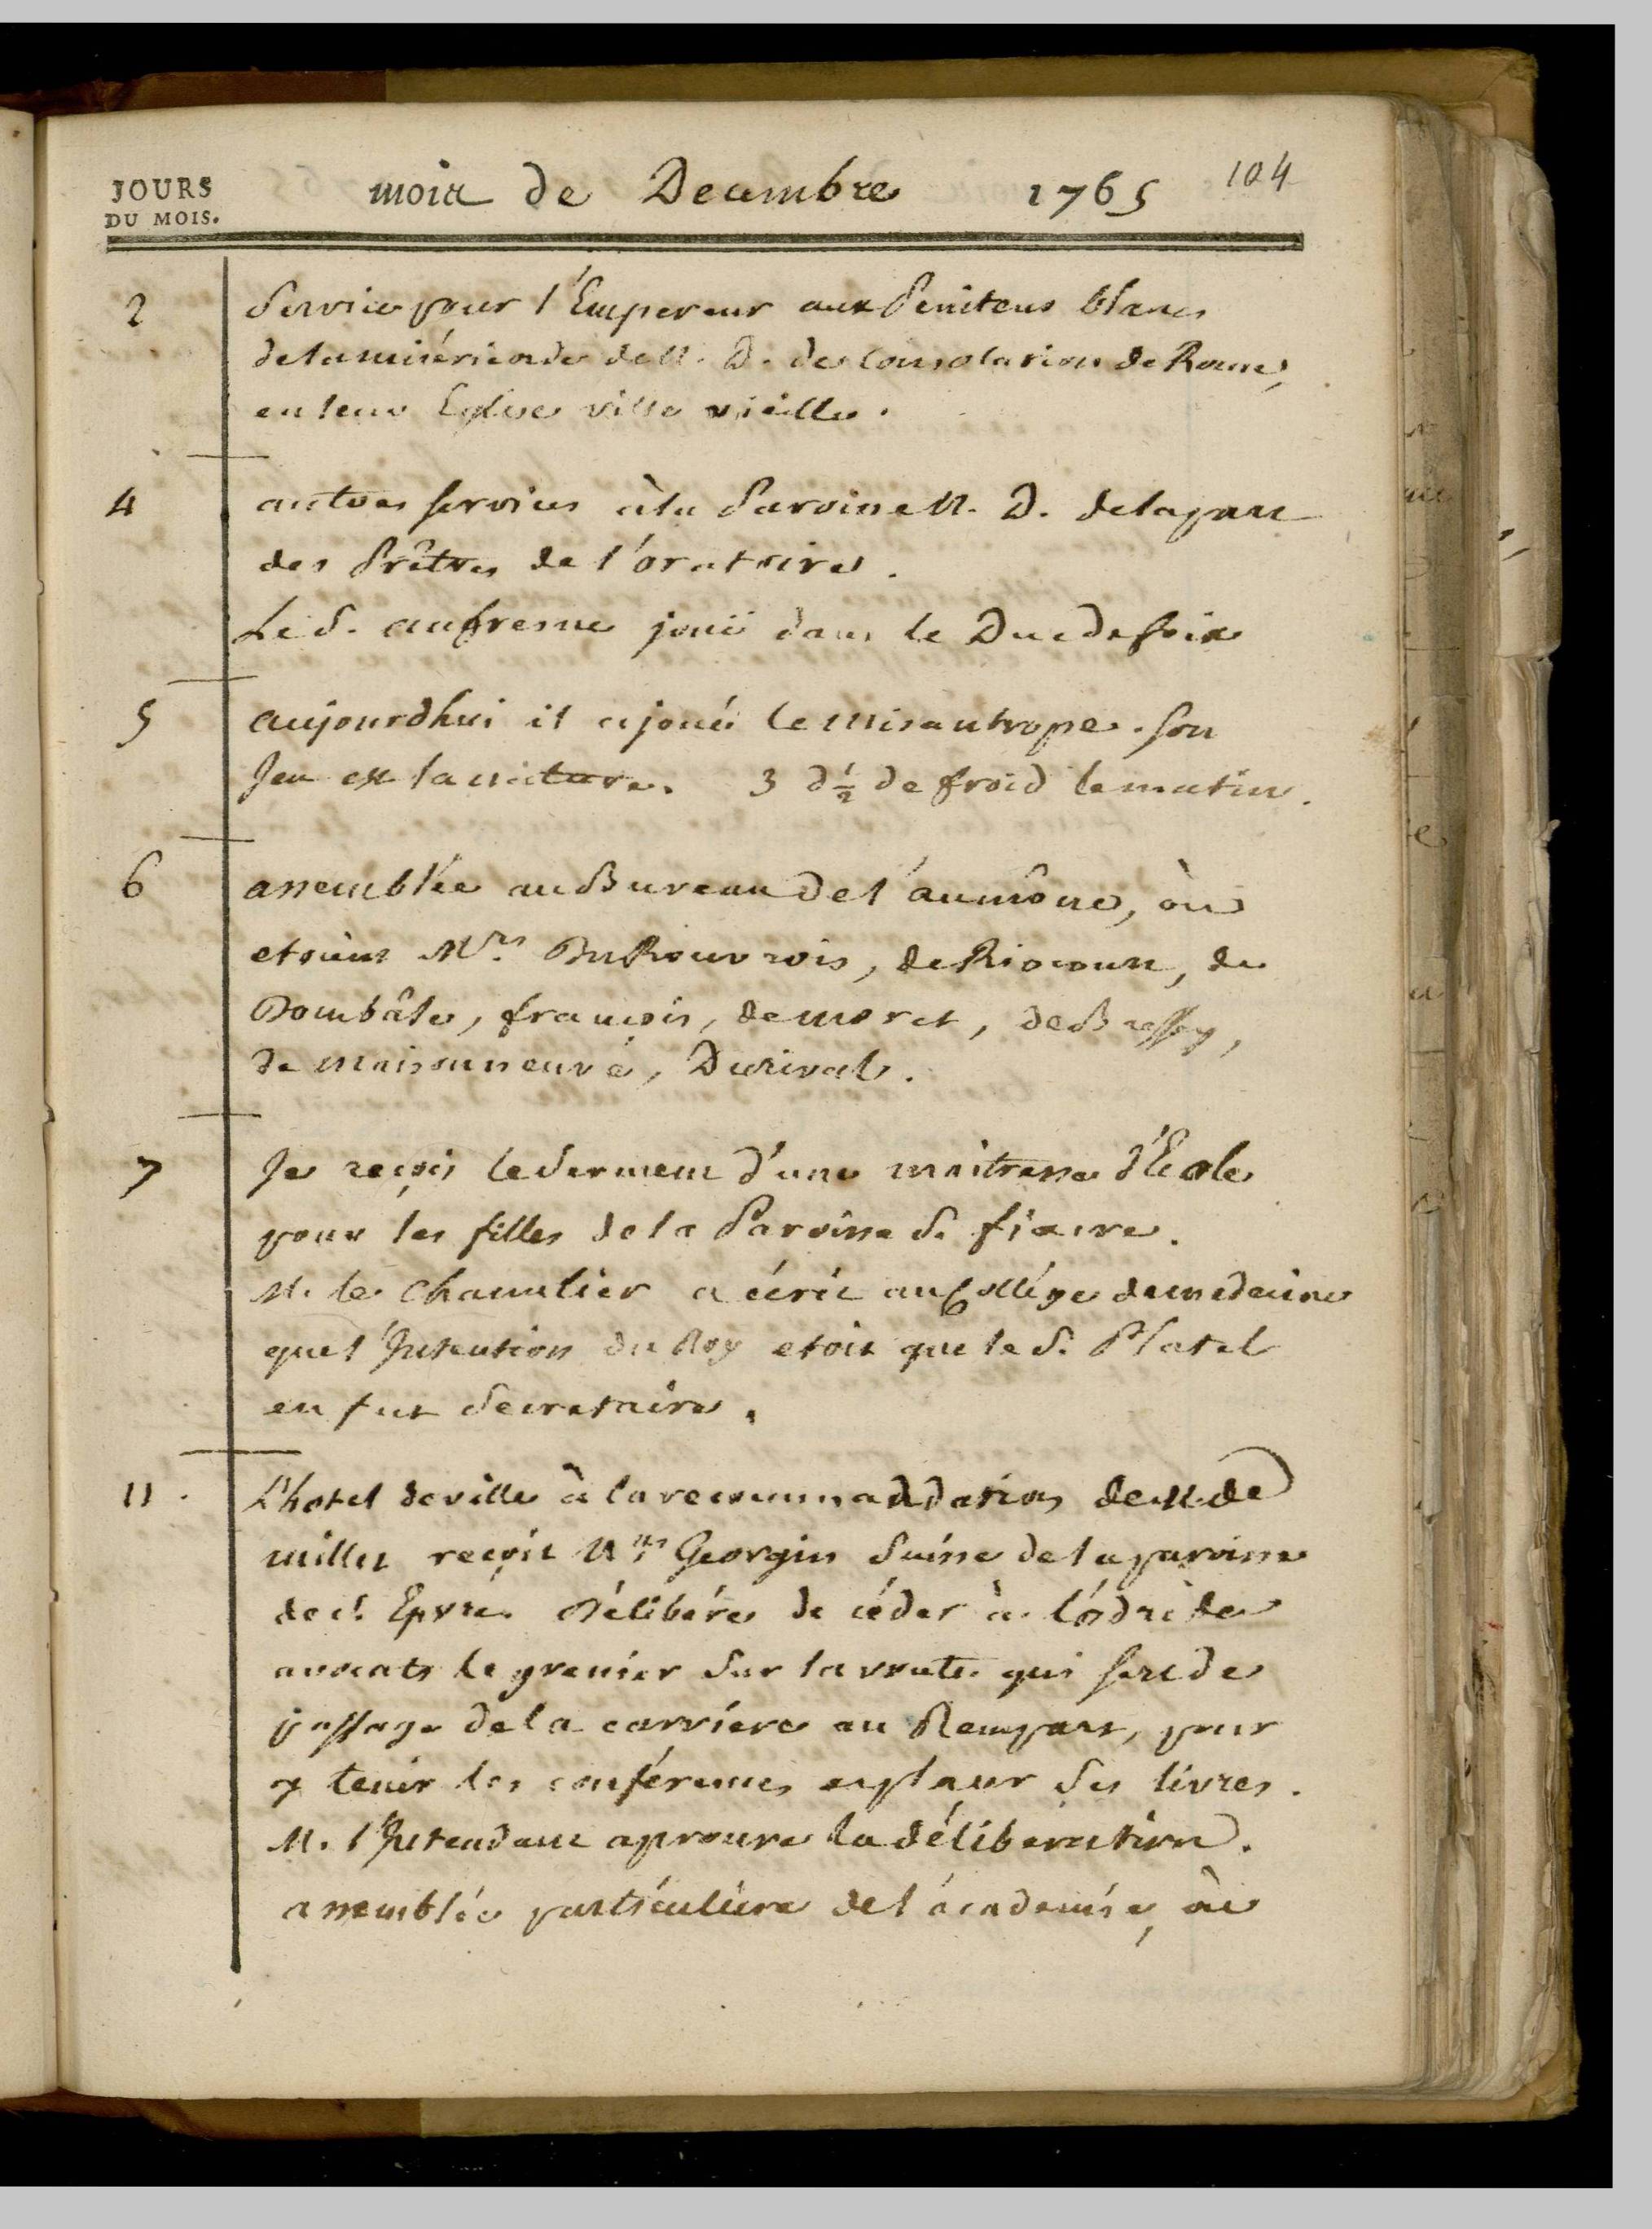 104
JOURS
DU MOIS.
mois de Decembre 1765
2 Service pour l'Empereur aux Penitens blancs
de la miséricorde de N. D. de Consolation de Rome,
en leur Eglise ville vieille.
4 autres services à la Paroisse N. D. de la part
des Prêtres de l'oratoire.
Le S. aufresne joüé dans le Duc de foix
5 aujourdhui il a joué le misantrope. son
Jeu est la nature. 3 d 1/2 de froid le matin.
6 assemblée au Bureau de l'aumône, où
etoient Mrs. Du Rouvrois, de Riocourt, de
Dombâle, françois, de moret, de Bressey,
de maisonneuve, Durival.
7 Je reçois le serment d'une maitresse d'Ecole
pour les filles de la Paroisse S. fiacre.
M. le Chancelier a écrit au Collège de medecine
que l'Intention du Roy etoit que le S. Platel
en fut Secretaire.
11. L'hotel de ville à la recommandation de M. de
millet reçoit Georgin Suisse de la paroisse
de S. Epvre. Délibéré de céder à l'ordre des
avocats le grenier sur la voute qui sert de
passage de la carriere au Rempart, pour
y tenir les conférences et placer ses livres.
M. l'Intendant aprouve la déliberation.
assemblée particulière de l'académie, où